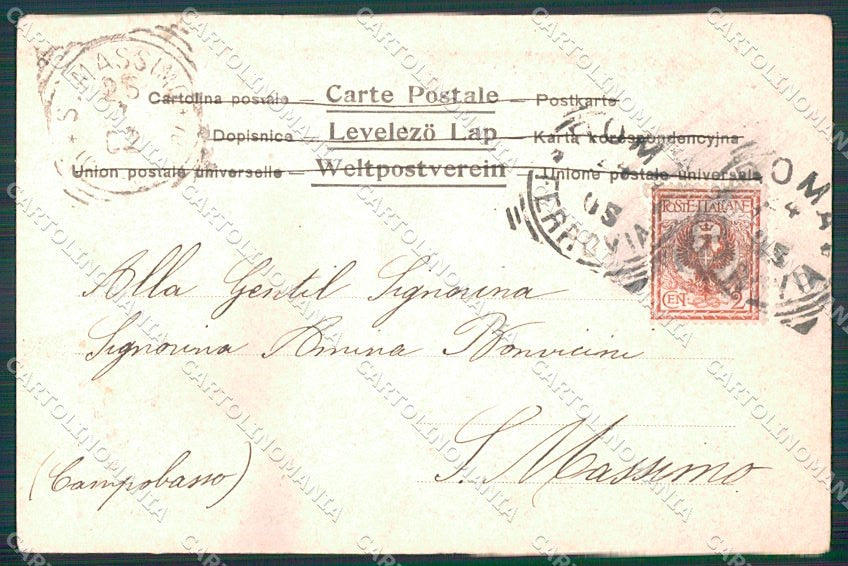 S. MASSIMO
25
02
Cartolina postale – Carte Postale – Postkarte
Dopisnice – Levelezö Lap – Karta korespondencyjna
Union postale universelle – Weltpostverein – Unione postale universale
ROMA
05
FERROVIA
ROMA
24
05
POSTE ITALIANE
CEN 2
Alla Gentil Signorina
Signorina Amina Bonvicini
S. Massimo
(Campobasso)
CARTOLINOMANIA